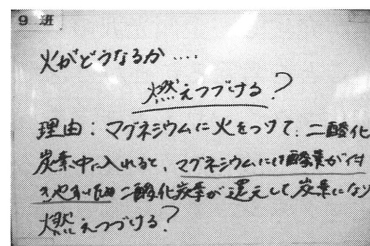 9 班
火がどうなるか ‥‥
燃えつづける?
理由:マグネシウムに火をつけて、二酸化
炭素中に入れると、マグネシウムには酸素が付
きやすいため 二酸化炭素が還元して炭素になり
燃えつづける?